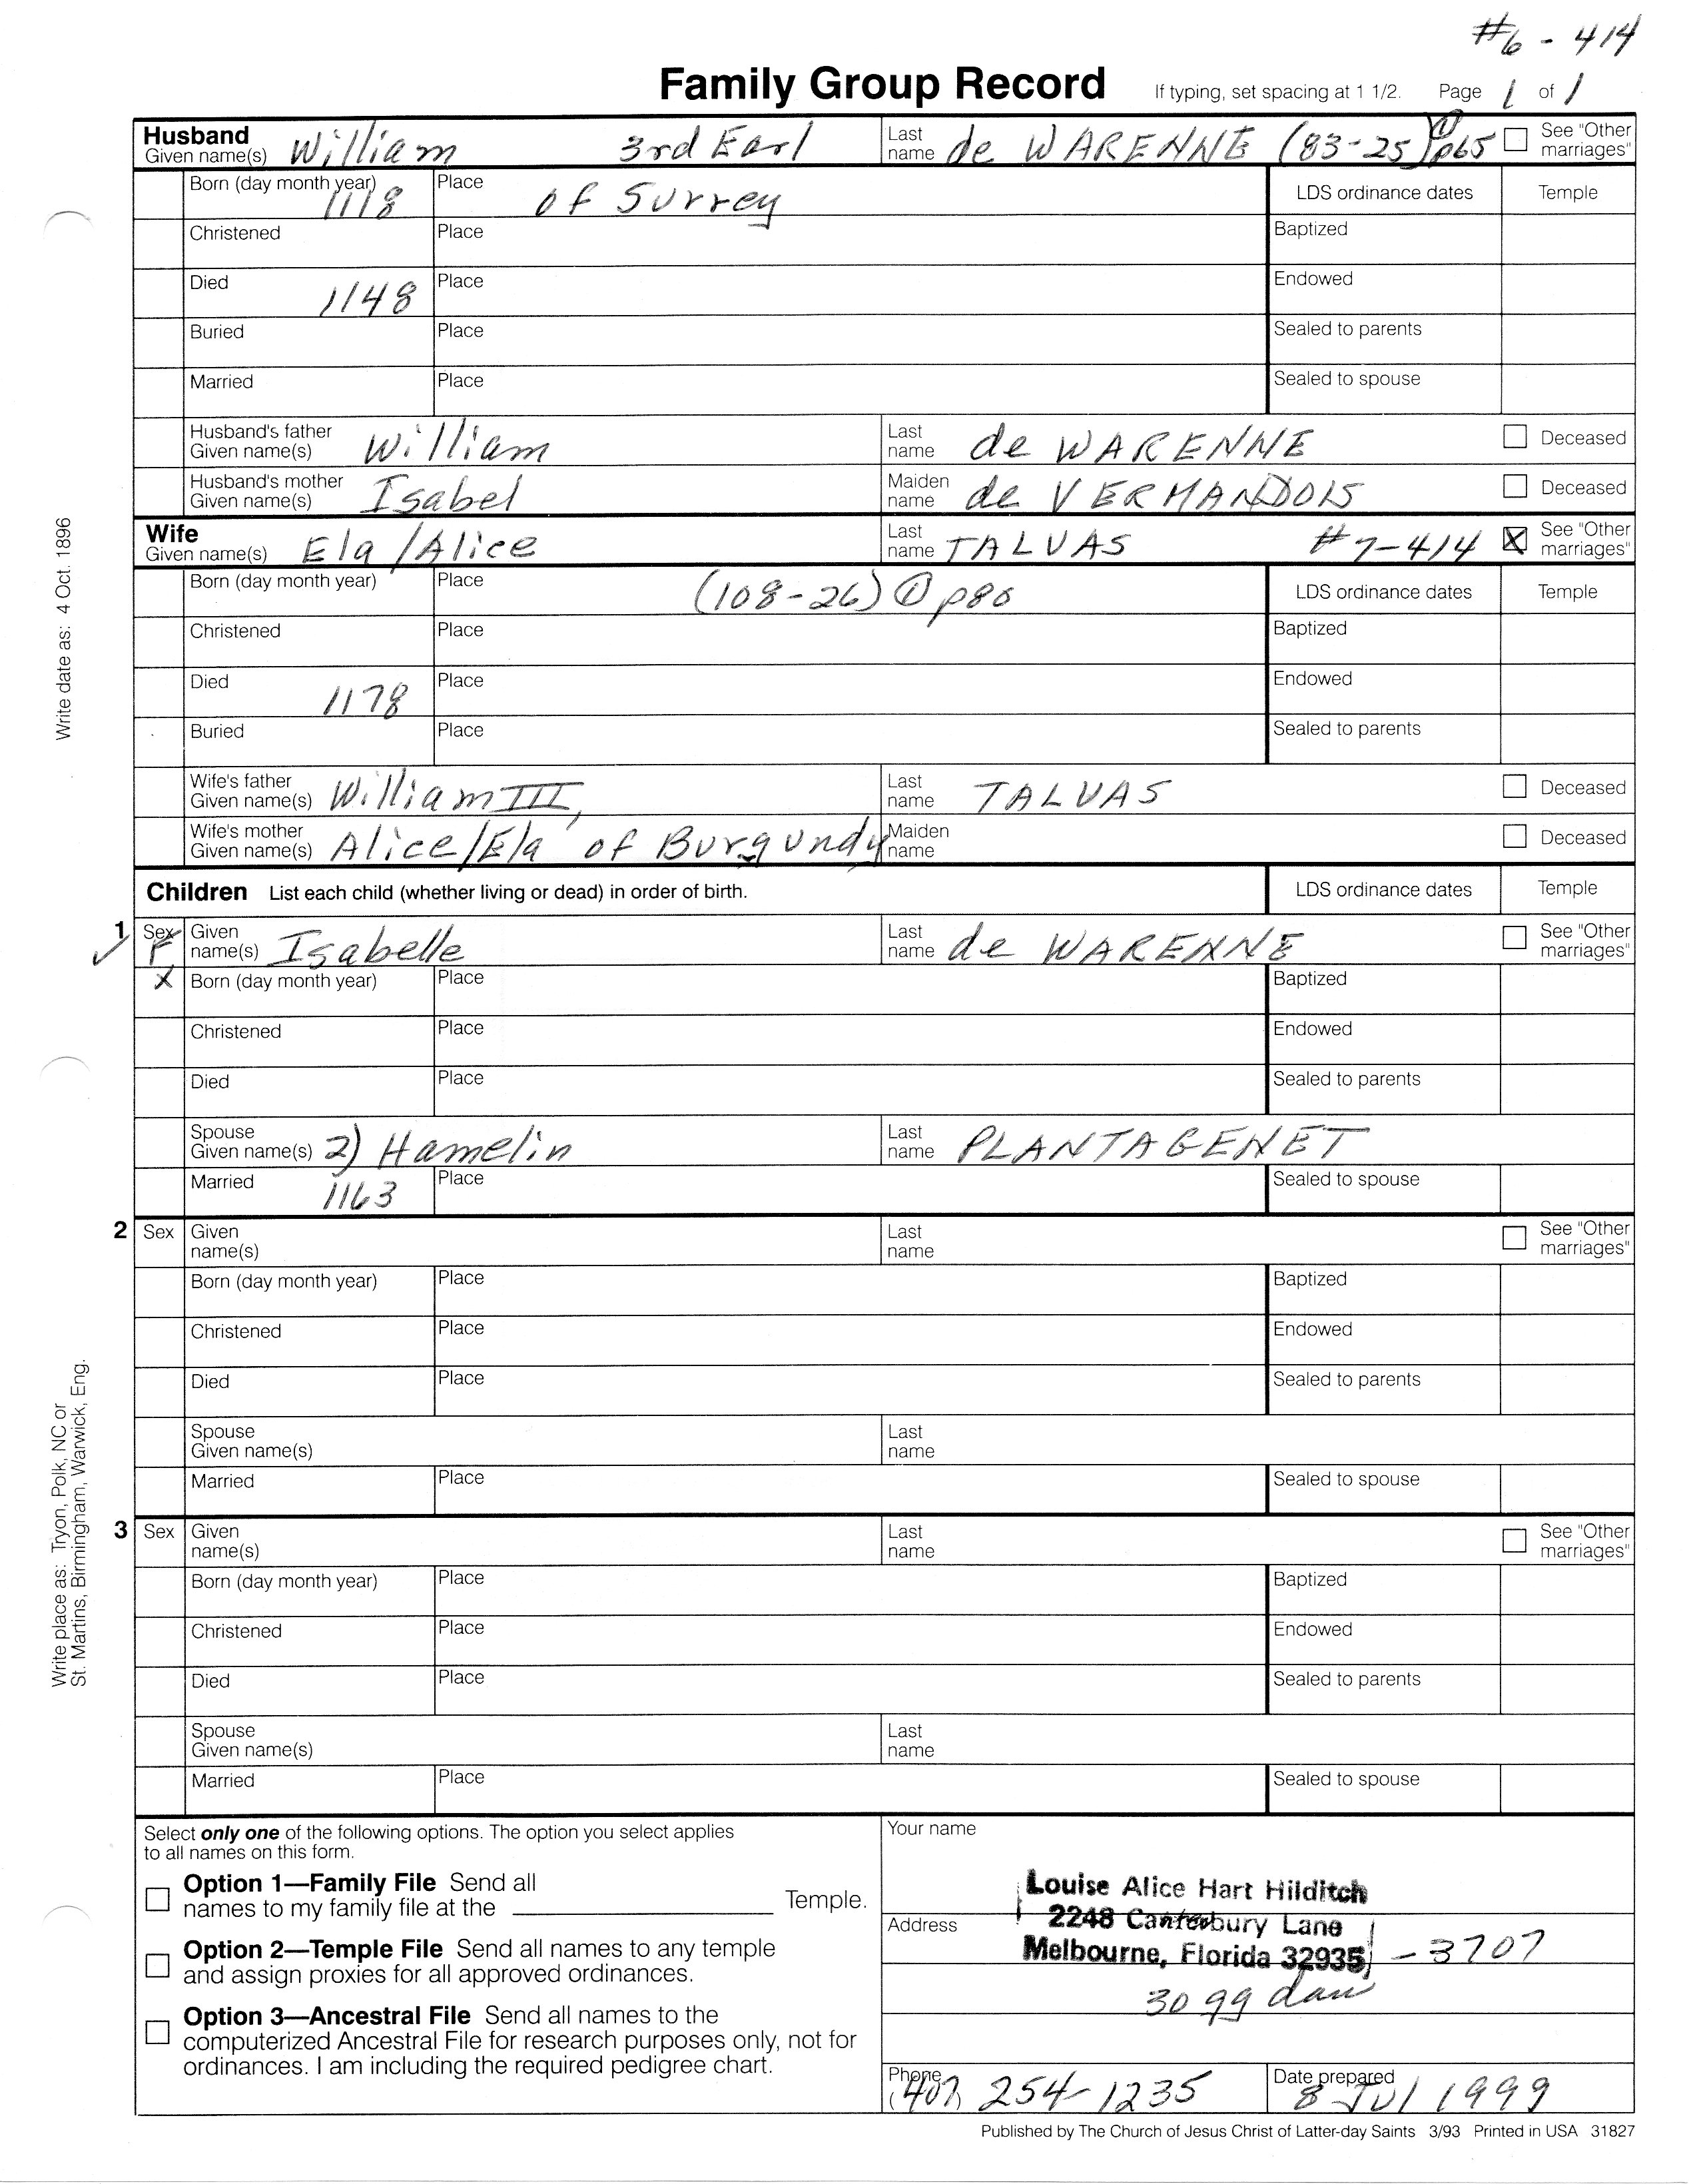 #6 - 414
Family Group Record If typing, set spacing at 1 1/2. Page 1 of 1
Husband
Given name(s) William 3rd Earl Last name de WARENNE (83-25) ① p65 See "Other marriages"
Born (day month year) 1118 Place of Surrey LDS ordinance dates Temple
Christened Place Baptized
Died 1148 Place Endowed
Buried Place Sealed to parents
Married Place Sealed to spouse
Husband's father Given name(s) William Last name de WARENNE Deceased
Husband's mother Given name(s) Isabel Maiden name de VERMANDOIS Deceased
Wife
Given name(s) Ela/Alice Last name TALVAS #7-414 See "Other marriages"
Born (day month year) Place (108-26) ① p80 LDS ordinance dates Temple
Christened Place Baptized
Died 1178 Place Endowed
Buried Place Sealed to parents
Wife's father Given name(s) William III, Last name TALVAS Deceased
Wife's mother Given name(s) Alice/Ela of Burgundy Maiden name Deceased
Children List each child (whether living or dead) in order of birth. LDS ordinance dates Temple
1 Sex F Given name(s) Isabelle Last name de WARENNE See "Other marriages"
X Born (day month year) Place Baptized
Christened Place Endowed
Died Place Sealed to parents
Spouse Given name(s) 2) Hamelin Last name PLANTAGENET
Married 1163 Place Sealed to spouse
2 Sex Given name(s) Last name See "Other marriages"
Born (day month year) Place Baptized
Christened Place Endowed
Died Place Sealed to parents
Spouse Given name(s) Last name
Married Place Sealed to spouse
3 Sex Given name(s) Last name See "Other marriages"
Born (day month year) Place Baptized
Christened Place Endowed
Died Place Sealed to parents
Spouse Given name(s) Last name
Married Place Sealed to spouse
Write date as: 4 Oct. 1896
Write place as: Tryon, Polk, NC or
St. Martins, Birmingham, Warwick, Eng.
Select only one of the following options. The option you select applies
to all names on this form.
Option 1—Family File Send all
names to my family file at the Temple.
Option 2—Temple File Send all names to any temple
and assign proxies for all approved ordinances.
Option 3—Ancestral File Send all names to the
computerized Ancestral File for research purposes only, not for
ordinances. I am including the required pedigree chart.
Your name
Louise Alice Hart Hilditch
Address 2248 Canterbury Lane
Melbourne, Florida 32935 - 3707
30 gg dau
Phone (407) 254-1235 Date prepared 8 Jul 1999
Published by The Church of Jesus Christ of Latter-day Saints 3/93 Printed in USA 31827